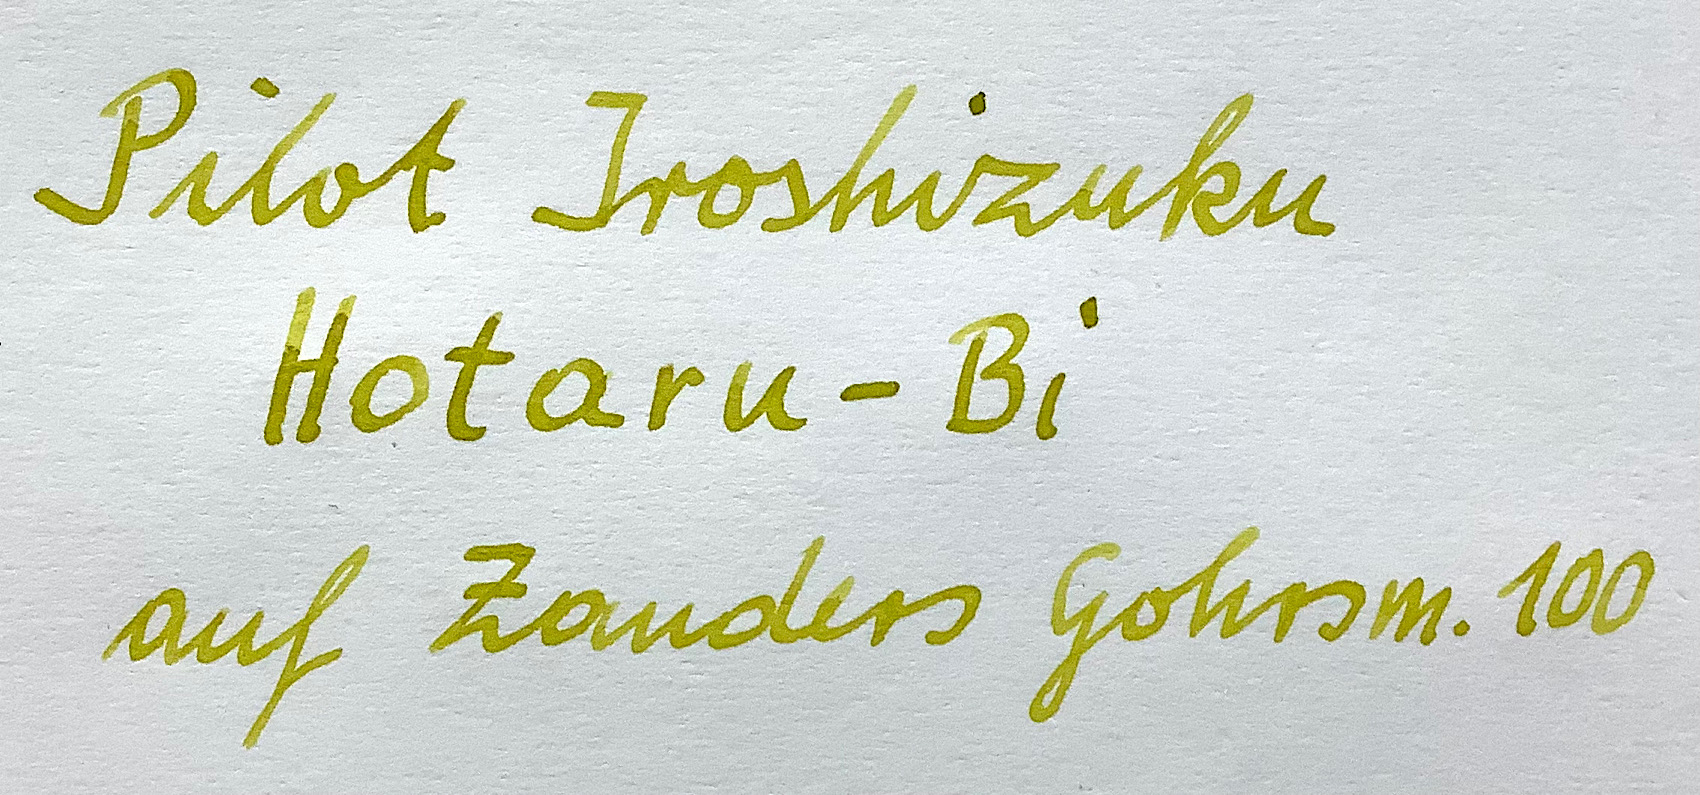 Pilot Iroshizuku
Hotaru-Bi
auf Zanders Gohrsm. 100